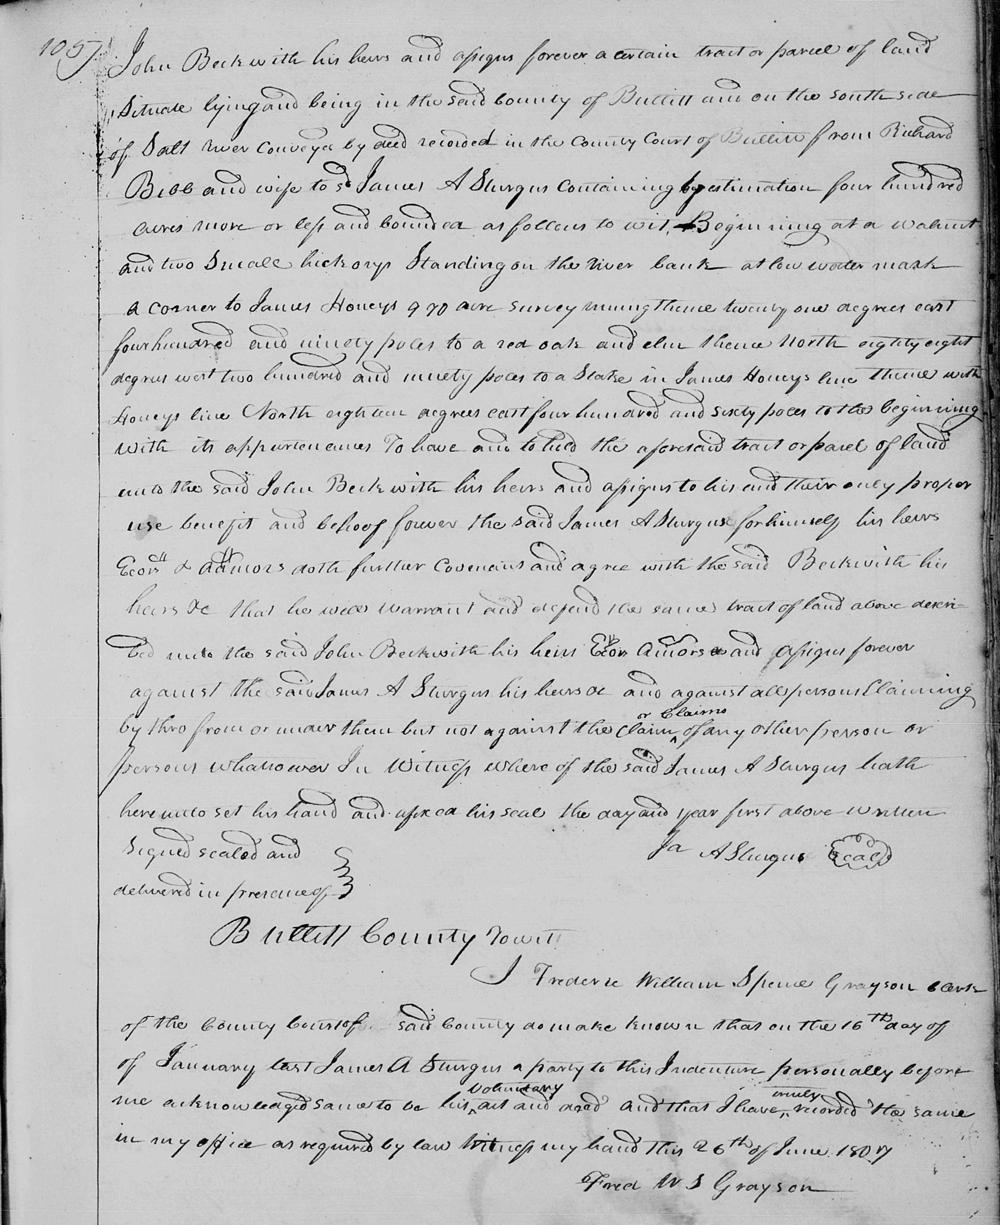 105
John Beckwith his heirs and assigns forever a certain tract or parcel of land
Situate lying and being in the said County of Bullitt and on the south side
of Salt river conveyed by deed recorded in the County Court of Bullitt from Richard
Bibb and wife to sd James A Sturgus containing by estimation four hundred
acres more or less and bounded as follows to wit, Beginning at a walnut
and two Small hickorys Standing on the river bank at low water mark
a corner to James Honeys 970 acre survey runing thence twenty one degrees east
four hundred and ninety poles to a red oak and elm thence North eighty eight
degrees west two hundred and ninety poles to a Stake in James Honeys line thence with
Honeys line North eighteen degrees east four hundred and sixty poles to the beginning
with its appurtenances To have and to hold the aforesaid tract or parcel of land
unto the said John Beckwith his heirs and assigns to his and their only proper
use benefit and behoof forever the said James A Sturgus for himself his heirs
Ecors & admors doth further Covenant and agree with the said Beckwith his
heirs &c that he will warrant and defend the same tract of land above descri-
bed unto the said John Beckwith his heirs Ecors Amors & and assigns forever
against the said James A Sturgus his heirs &c and against all persons Claiming
by thro from or under them but not against the claim or Claims of any other person or
persons whatsoever In Witness where of the said James A Sturgus hath
hereunto set his hand and afixed his seal the day and year first above written
Signed sealed and Ja A Sturgus Seal
delivered in presence of
Bullitt County Towit
I Frederic William Spence Grayson clerk
of the County Court of said County do make known that on the 16th day of
of January last James A Sturgus a party to this Indenture personally before
me acknowledged same to be his voluntary act and deed and that I have truly recorded the same
in my office as required by law Witness my hand this 26th of June 1807
Fred W S Grayson